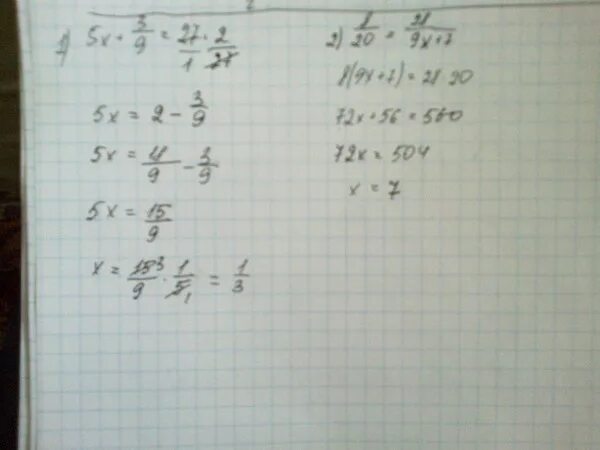 1) 5x + 3/9 = 27/1 · 2/27
5x = 2 - 3/9
5x = 18/9 - 3/9
5x = 15/9
x = 15³/9 · 1/5₁ = 1/3
2) 8/20 = 28/9x+7
8(9x+7) = 28·20
72x+56 = 560
72x = 504
x = 7